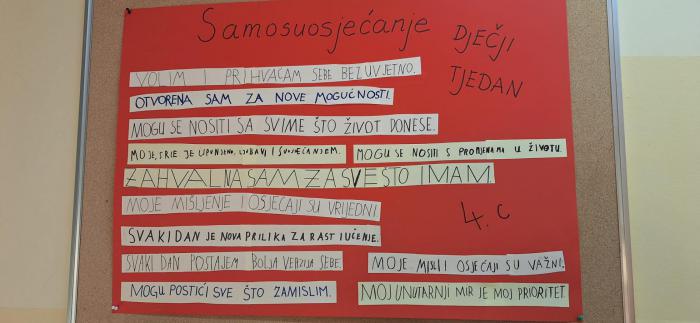 Samosuosjećanje
DJEČJI
TJEDAN
VOLIM I PRIHVAĆAM SEBE BEZUVJETNO.
OTVORENA SAM ZA NOVE MOGUĆNOSTI.
MOGU SE NOSITI SA SVIME ŠTO ŽIVOT DONESE.
MOJE SRCE JE ISPUNJENO LJUBAVI I SUOSJEĆANJEM.
MOGU SE NOSITI S PROMJENAMA U ŽIVOTU.
ZAHVALNA SAM ZA SVE ŠTO IMAM.
MOJE MIŠLJENJE I OSJEĆAJI SU VRIJEDNI
4. c
SVAKI DAN JE NOVA PRILIKA ZA RAST I UČENJE.
SVAKI DAN POSTAJEM BOLJA VERZIJA SEBE.
MOJE MISLI I OSJEĆAJI SU VAŽNI.
MOGU POSTIĆI SVE ŠTO ZAMISLIM.
MOJ UNUTARNJI MIR JE MOJ PRIORITET.